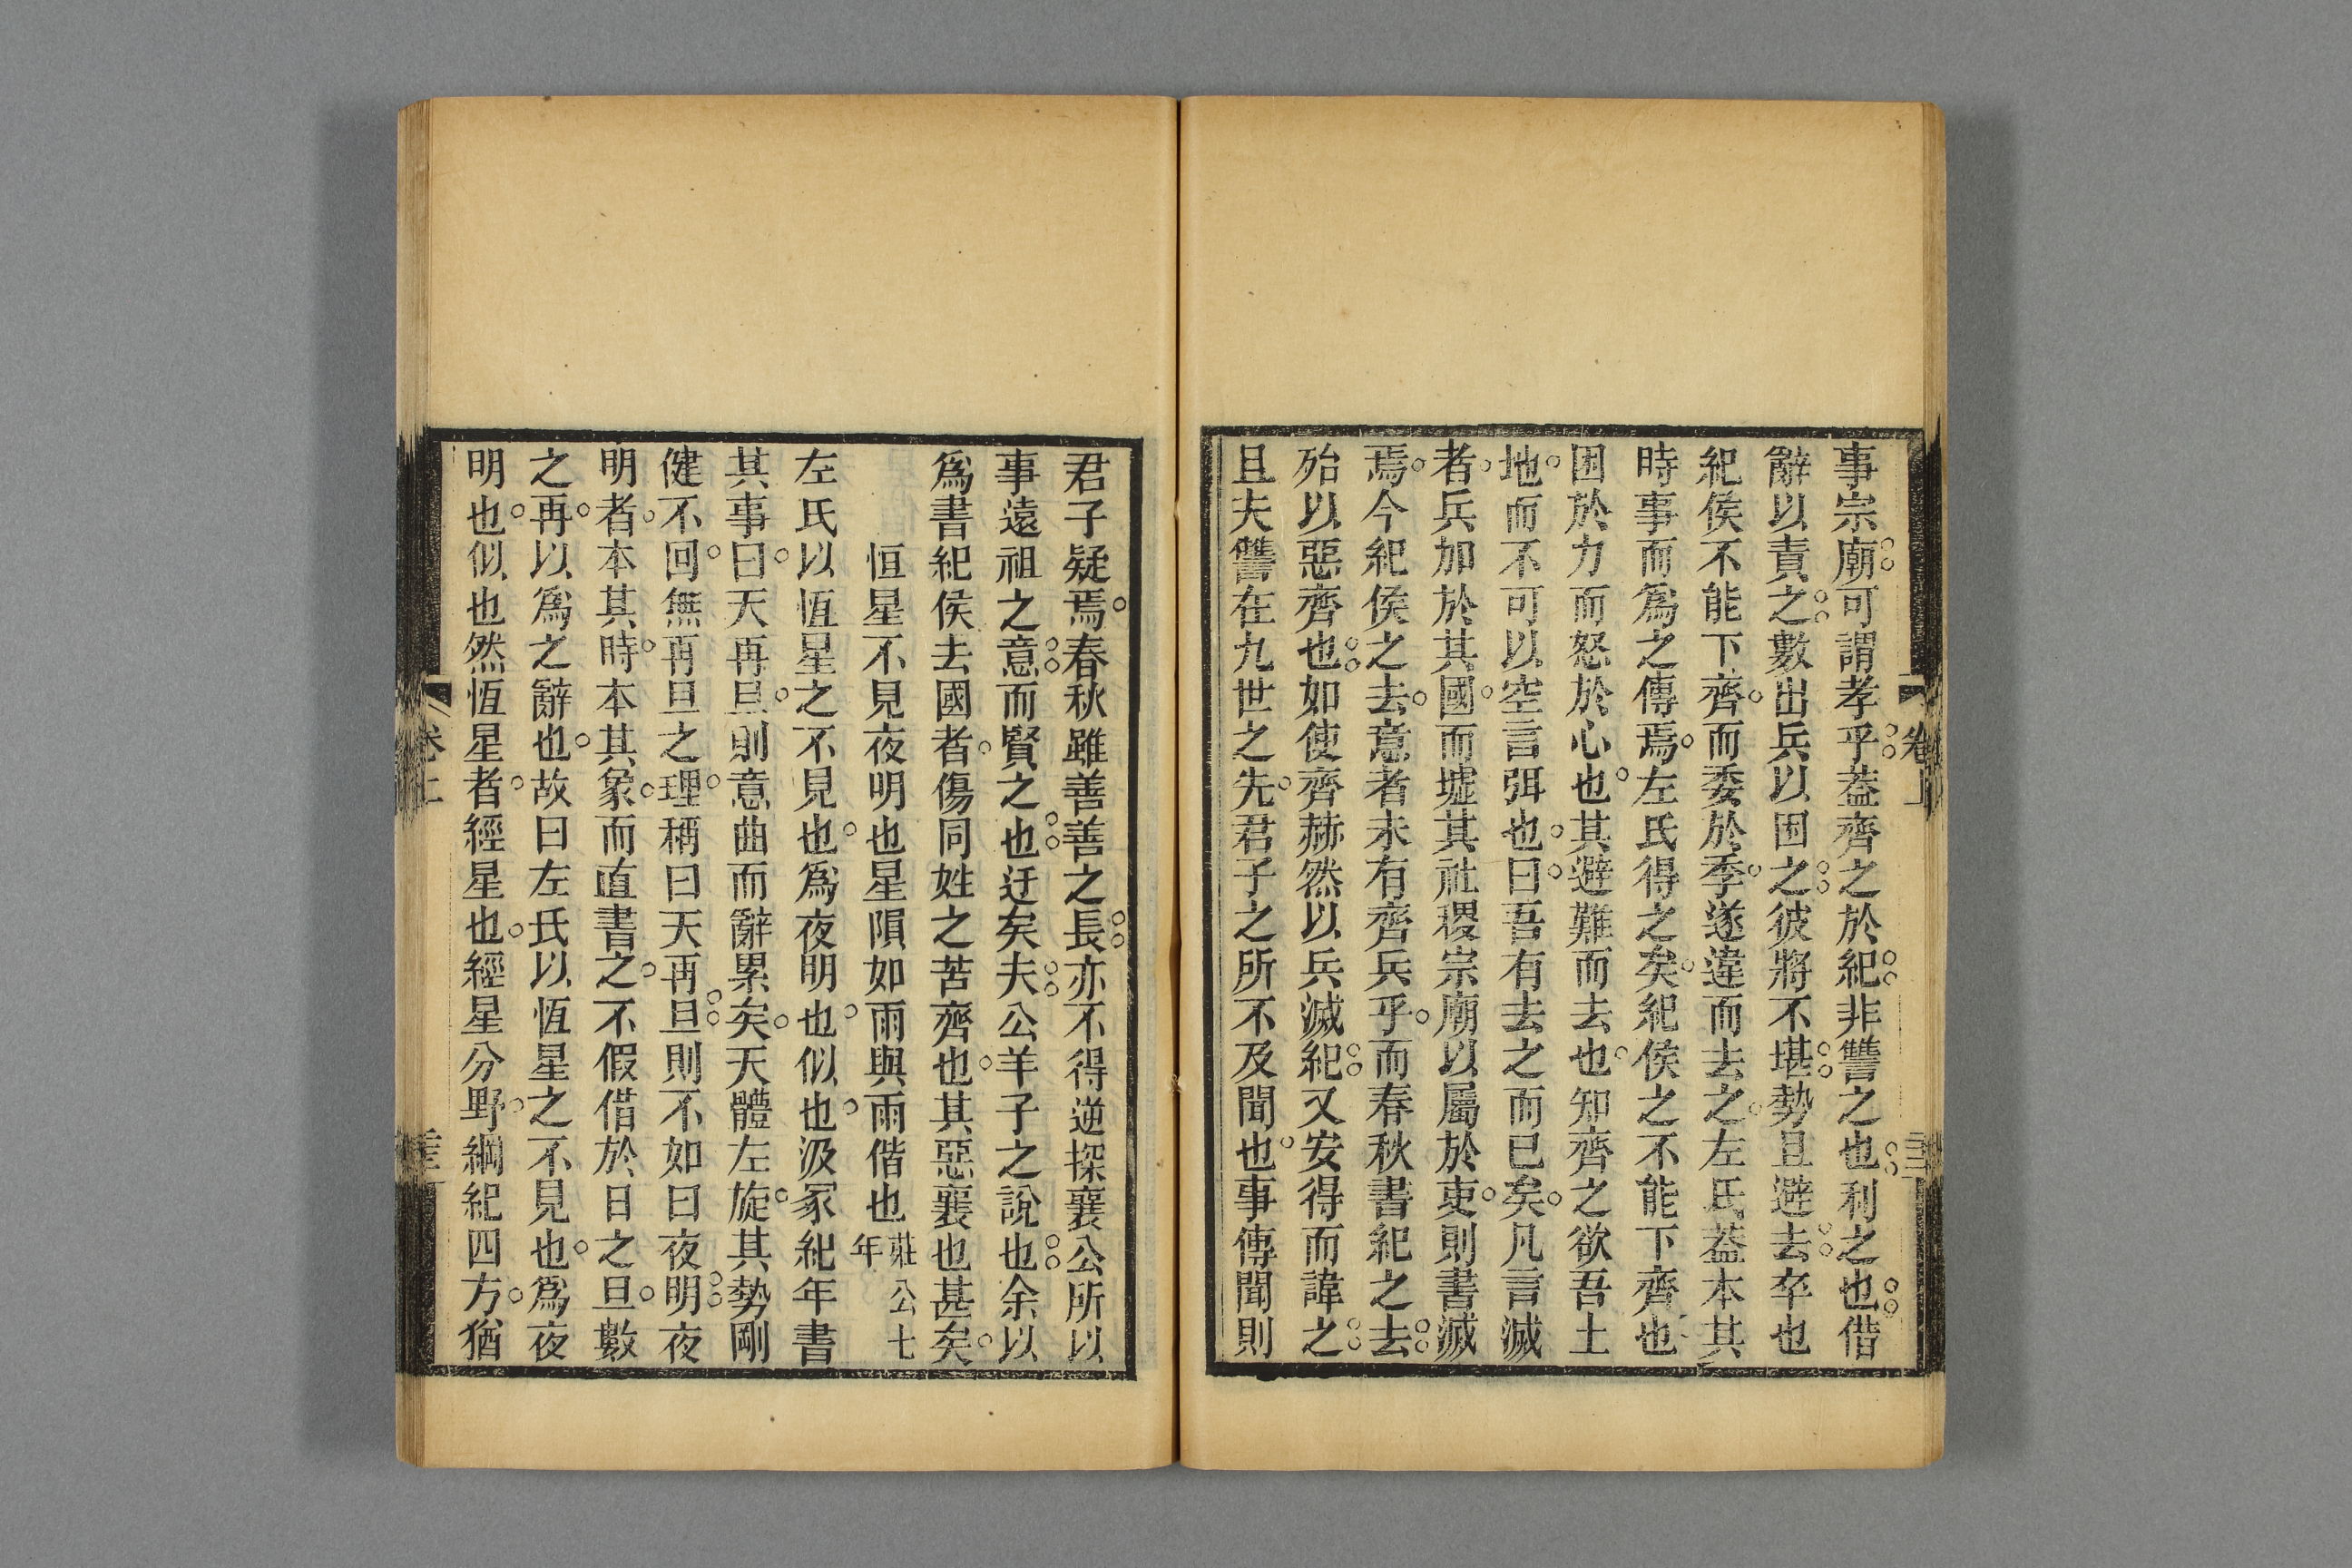 事宗廟可謂孝乎葢齊之於紀非讐之也利之也借
辭以責之數出兵以困之彼將不堪勢且避去卒也
紀侯不能下齊而委於季遂違而去之左氏葢本其
時事而爲之傳焉左氏得之矣紀侯之不能下齊也
困於力而怒於心也其避難而去也知齊之欲吾土
地而不可以空言弭也曰吾有去之而已矣凡言滅
者兵加於其國而墟其社稷宗廟以屬於吏則書滅
焉今紀侯之去意者未有齊兵乎而春秋書紀之去
殆以惡齊也如使齊赫然以兵滅紀又安得而諱之
且夫讐在九世之先君子之所不及聞也事傳聞則
君子疑焉春秋雖善善之長亦不得逆探襄公所以
事遠祖之意而賢之也迂矣夫公羊子之說也余以
爲書紀侯去國者傷同姓之苦齊也其惡襄也甚矣
恒星不見夜明也星隕如雨與雨偕也莊公七年
左氏以恆星之不見也爲夜明也似也汲冢紀年書
其事曰天再旦則意曲而辭累矣天體左旋其勢剛
健不回無再旦之理稱曰天再旦則不如曰夜明夜
明者本其時本其象而直書之不假借於日之旦數
之再以爲之辭也故曰左氏以恆星之不見也爲夜
明也似也然恆星者經星也經星分野綱紀四方猶
卷上